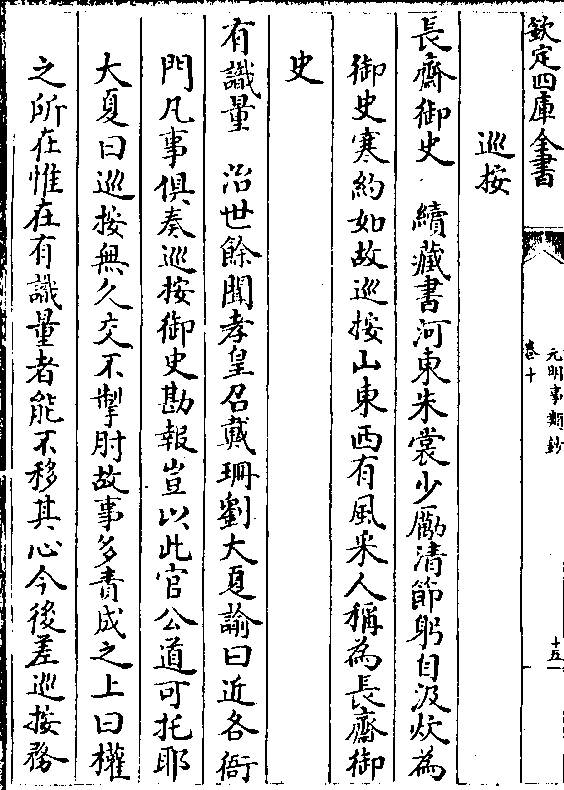 欽定四庫全書
元明事類鈔
卷十
十五
巡按
長齋御史　續藏書河東朱裳少勵清節躬自汲炊為
御史寒約如故巡按山東西有風采人稱為長齋御
史
有識量　治世餘聞孝皇召戴珊劉大夏諭曰近各衙
門凡事俱奏巡按御史勘報豈以此官公道可托耶
大夏曰巡按無久交不掣肘故事多責成之上曰權
之所在惟在有識量者能不移其心今後差巡按務